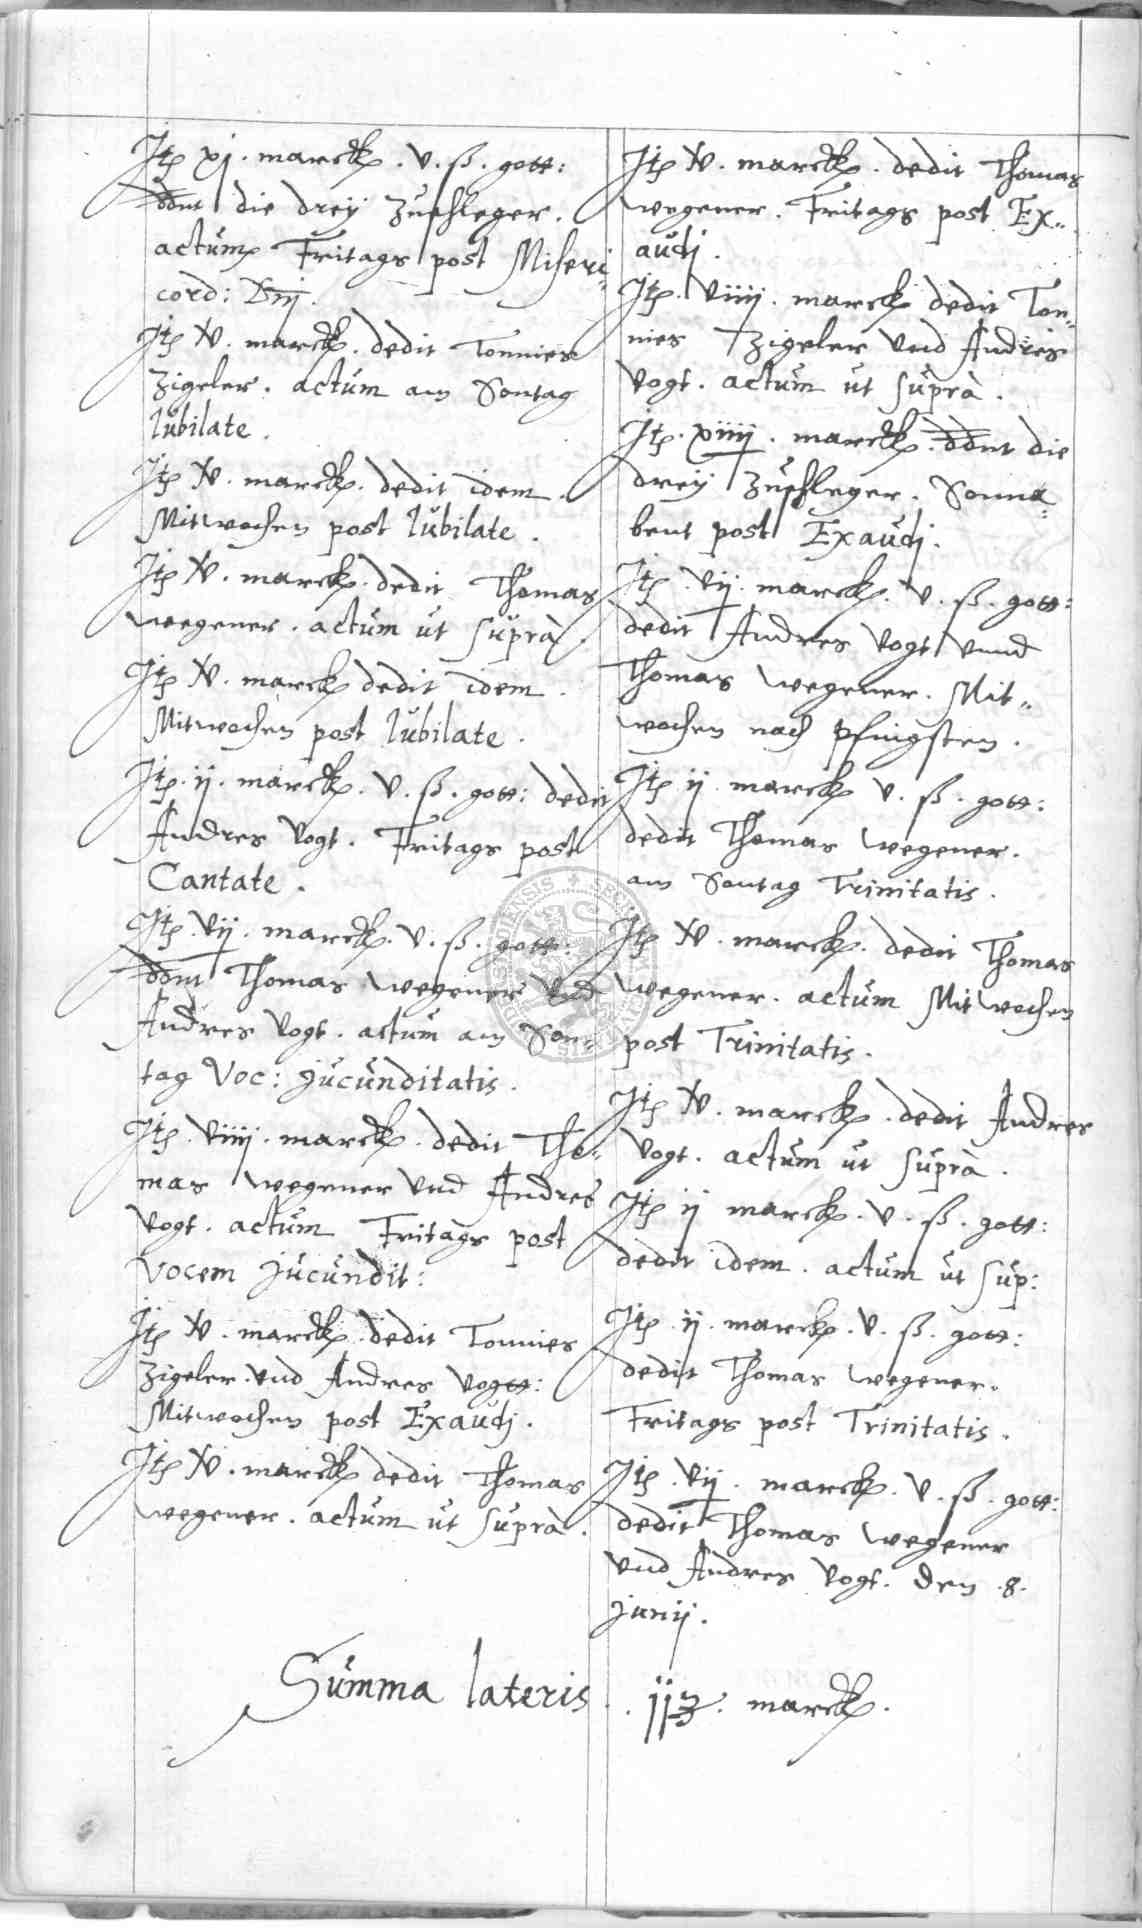 Itp xj. marck. v. ß. gott:
ddnt die drey Zuschleger.
actum Fritags post Miseri„
cord: Dnj.
Itp V. marck. dedit Tonnies
Zigeler. actum am Sontag
Iubilate.
Itp V. marck. dedit idem.
Mitwochen post Iubilate.
Itp V. marck. dedit Thomas
wegener. actum ut suprà.
Itp V. marck dedit idem.
Mitwochen post Iubilate.
Itp. ij. marck. v. ß. gott: dedit
Andres Vogt. Fritags post
Cantate.
Itp. vij. marck. v. ß. gott:
ddnt Thomas wegener vnd
Andres Vogt. actum am Son„
tag Voc: jucunditatis.
Itp. viiij. marck. dedit Tho„
mas wegener vnd Andres
Vogt. actum Fritags post
Vocem jucundit:
Itp V. marck. dedit Tonnies
Zigeler. vnd Andres Vogtt:
Mitwochen post Exaudj.
Itp V. marck dedit Thomas
wegener. actum ut suprà.
Itp V. marck. dedit Thomas
wegener. Fritags post Ex„
audj.
Itp. viiij. marck dedit Ton„
nies Zigeler vnd Andres
Vogt. actum ut suprà.
Itp. xiiij. marck. ddnt die
drey Zuschleger. Sonna„
bent post Exaudj.
Itp. vij. marck. v. ß. gott:
dedit Andres Vogt vnnd
Thomas wegener. Mit„
wochen nach Pfingsten.
Itp ij marck v. ß. gott:
dedit Thomas wegener.
am Sontag Trinitatis.
Itp V. marck. dedit Thomas
wegener. actum Mitwochen
post Trinitatis.
Itp V. marck. dedit Andres
Vogt. actum ut suprà.
Itp ij marck. v. ß. gott:
dedit idem. actum ut sup:
Itp. ij. marck. v. ß. gott:
dedit Thomas wegener.
Fritags post Trinitatis.
Itp. vij. marck. v. ß. gott:
dedit Thomas wegener
vnd Andres Vogt. den .8.
junij.
Summa lateris . 113. marck.